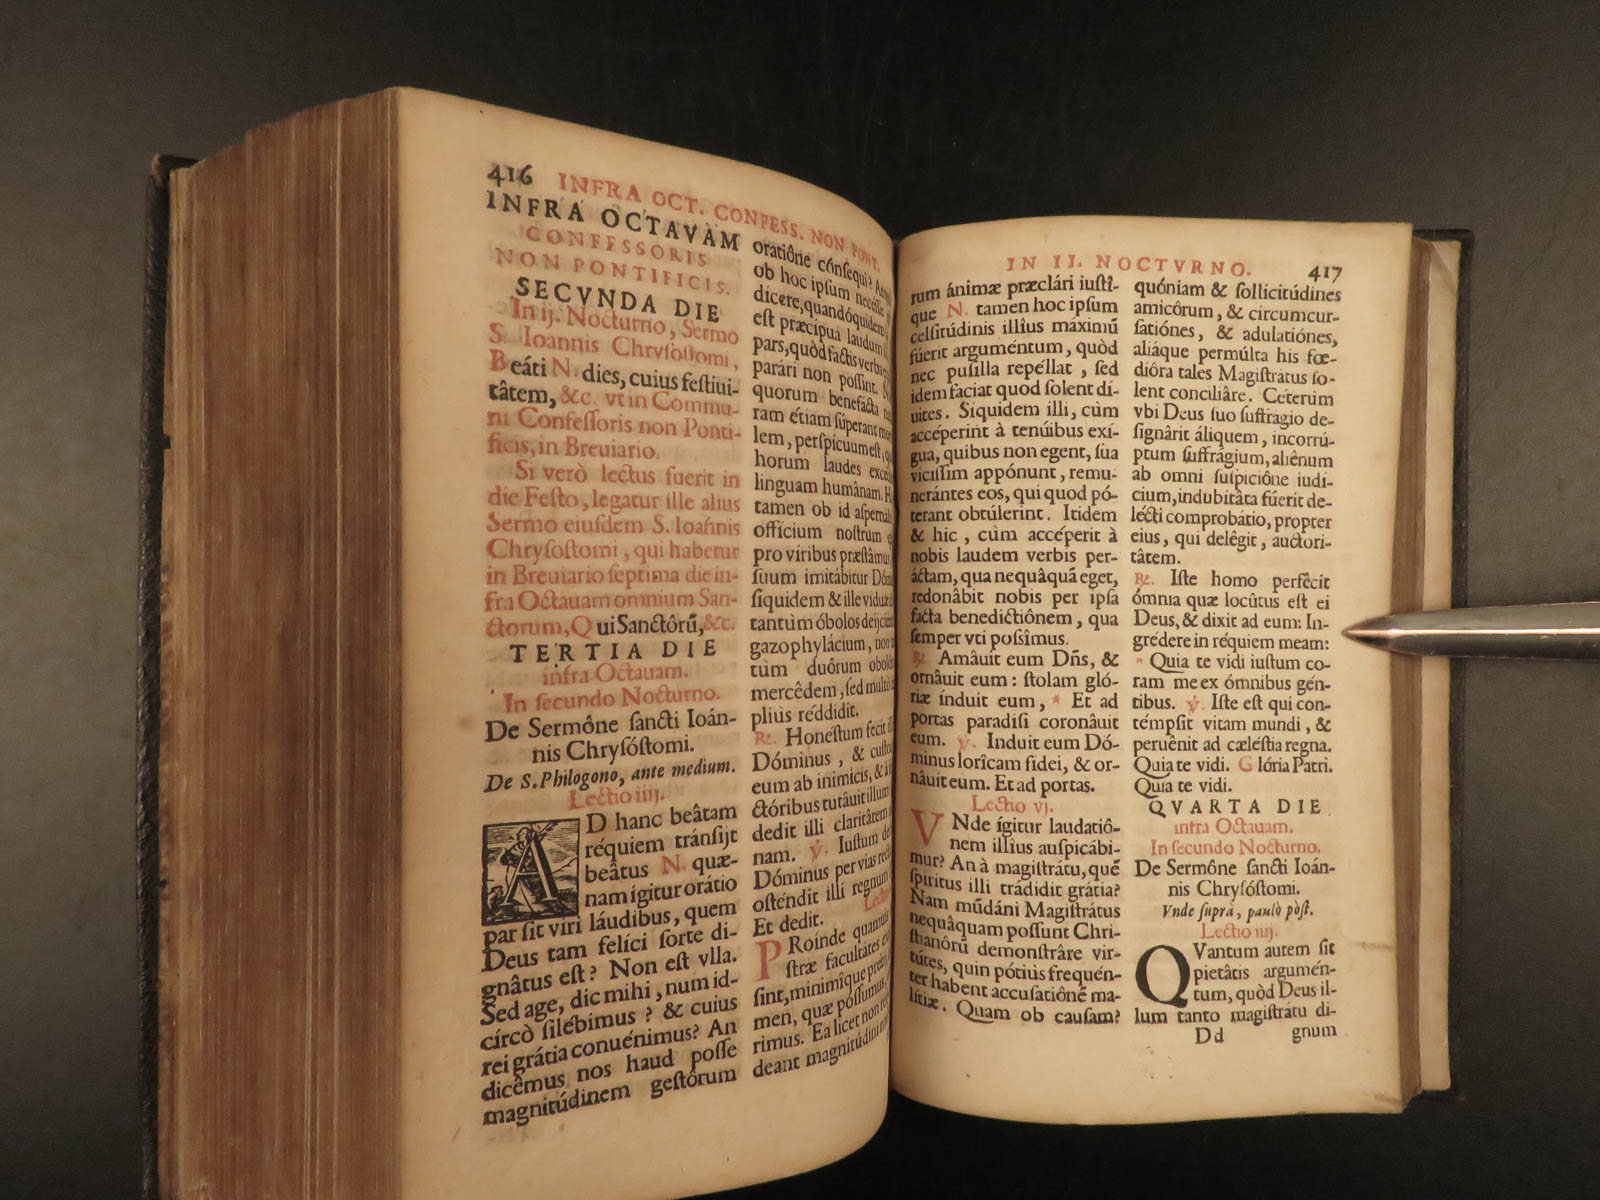 416 INFRA OCT. CONFESS. NON PONT.
INFRA OCTAVAM
CONFESSORIS
NON PONTIFICIS.
SECVNDA DIE
In ij. Nocturno, Sermo
S. Ioannis Chryſoſtomi,
Beáti N. dies, cuius feſtiui-
tâtem, &c. vt in Commu-
ni Confeſſoris non Ponti-
ficis, in Breuiario.
Si verò lectus fuerit in
die Feſto, legatur ille alius
Sermo eiuſdem S. Ioannis
Chryſoſtomi, qui habetur
in Breuiario ſeptima die in-
fra Octauam omnium San-
ctorum, Qui Sanctôrũ, &c.
TERTIA DIE
infra Octauam.
In ſecundo Nocturno.
De Sermône ſancti Ioán-
nis Chryſóſtomi.
De S. Philogono, ante medium.
Lectio iiij.
AD hanc beâtam
réquiem tránſijt
beâtus N. quæ-
nam ígitur orátio
par ſit viri láudibus, quem
Deus tam felíci ſorte di-
gnâtus eſt? Non eſt vlla.
Sed age, dic mihi, num id-
círcò ſilébimus? & cuius
rei grátia conuénimus? An
dicêmus nos haud poſſe
magnitúdinem geſtôrum
oratiône cónſequi?
ob hoc ipſum neceſſe
dícere, quandóquidem
eſt præcipua laudum
pars, quòd factis verba
parári non poſſint.
quorum benefácta
ram étiam ſúperant
lem, perſpícuum eſt,
horum laudes
linguam humânam.
tamen ob id
offícium noſtrum
pro víribus præſtâmus
ſuum imitábitur
ſiquidem & ille víduæ
tantùm óbolos
gazophylácium, non
tùm duôrum
mercêdem, ſed multò
pliùs réddidit.
℟. Honeſtum fecit
Dóminus, & cuſto
eum ab inimícis, &
ctóribus tutâuit illum
dedit illi claritâtem
nam. ℣. Iuſtum
Dóminus per vias
oſtendit illi regnum
Et dedit.
PRoínde quamuis
ſtræ facultâtes
ſint, minimîque
men, quæ póſſumus,
rimus. Ea licet non
deant magnitúdini
IN II. NOCTVRNO. 417
rum ánimæ præclári iuſtî-
que N. tamen hoc ipſum
celſitúdinis illîus máximũ
fúerit arguméntum, quòd
nec puſilla repéllat, ſed
idem faciat quod ſolent di-
uites. Síquidem illi, cùm
accéperint à tenúibus exí-
gua, quibus non egent, ſua
viciſſim appónunt, remu-
nerántes eos, qui quod pó-
terant obtúlerint. Itidem
& hic, cùm accéperit à
nobis laudem verbis per-
áctam, qua nequâquã eget,
redonâbit nobis per ipſa
facta benedictiônem, qua
ſemper vti poſſimus.
℟. Amâuit eum Dñs, &
ornâuit eum: ſtolam gló-
riæ índuit eum, * Et ad
portas paradiſi coronâuit
eum. ℣. Induit eum Dó-
minus lorîcam fidei, & or-
nâuit eum. Et ad portas.
Lectio vj.
VNde ígitur laudatiô-
nem illîus auſpicábi-
mur? An à magiſtrátu, quẽ
ſpíritus illi trádidit grátia?
Nam mũdáni Magiſtrátus
nequâquam poſſunt Chri-
ſtianôrũ demonſtrâre vir-
tútes, quin pótiùs frequén-
ter habent accuſatiônẽ ma-
lítiæ. Quam ob cauſam?
quóniam & ſollicitúdines
amicôrum, & circumcur-
ſatiónes, & adulatiónes,
aliáque permúlta his fœ-
diôra tales Magiſtrátus ſo-
lent conciliâre. Céterùm
vbi Deus ſuo ſuffrágio de-
ſignârit áliquem, incorrú-
ptum ſuffrágium, aliênum
ab omni ſuſpiciône iudí-
cium, indubitâta fúerit de-
lécti comprobátio, propter
eius, qui delêgit, auctori-
tâtem.
℟. Iſte homo perfêcit
ómnia quæ locûtus eſt ei
Deus, & dixit ad eum: In-
grédere in réquiem meam:
* Quia te vidi iuſtum co-
ram me ex ómnibus gén-
tibus. ℣. Iſte eſt qui con-
témpſit vitam mundi, &
peruênit ad cæléſtia regna.
Quia te vidi. Glória Patri.
Quia te vidi.
QVARTA DIE
infra Octauam.
In ſecundo Nocturno.
De Sermône ſancti Ioán-
nis Chryſóſtomi.
Vnde ſuprà, paulò pòſt.
Lectio iiij.
QVantum autem ſit
pietâtis argumén-
tum, quòd Deus il-
lum tanto magiſtrátu di-
Dd gnum